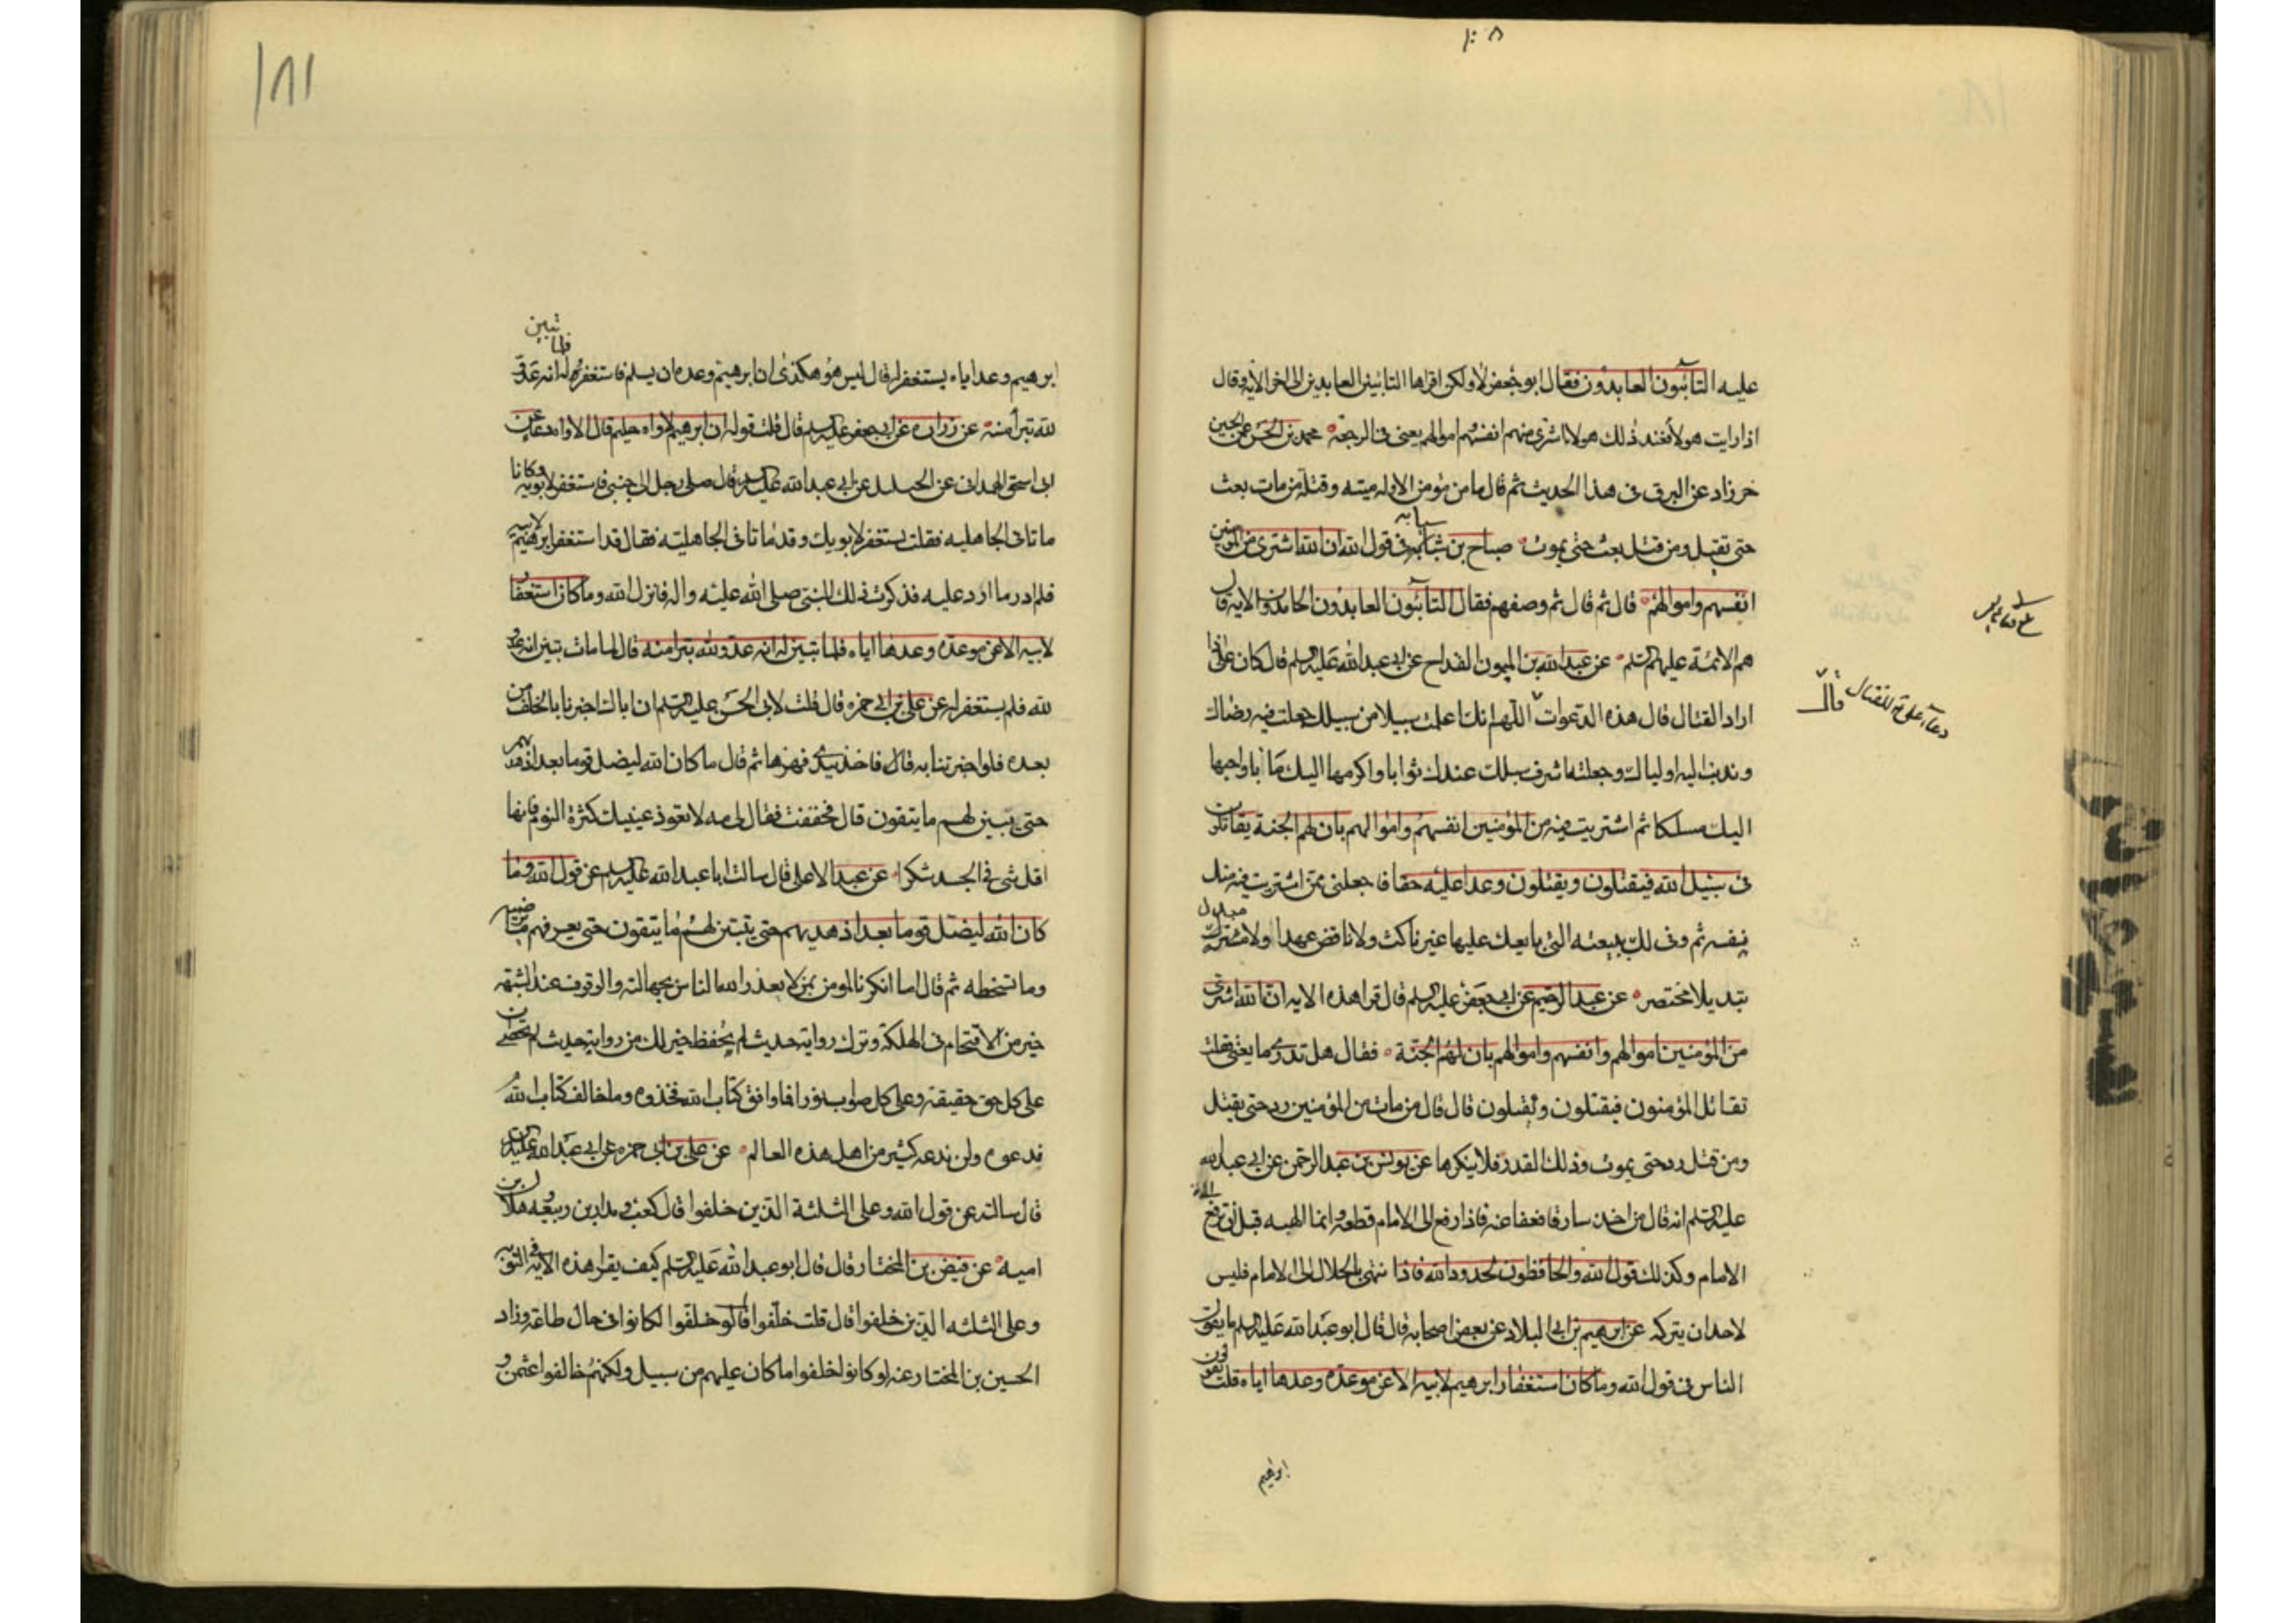 عليه التائبون العابدون فقال ابو جعفر لا ولكن اقراها التائبين العابدين الى اخر الاية وقال
اذا رايت هولاء فعند ذلك هولاء اشترى منهم انفسهم واموالهم يعنى فى الرجعة محمد بن الحسن عن الحسين
خرزاد عن البرقى فى هذا الحديث ثم قال ما من مؤمن الا وله ميتة وقتلة من مات بعث
حتى يقتل ومن قتل بعث حتى يموت صباح بن سيابة فى قول الله ان الله اشترى من المومنين
انفسهم واموالهم قال ثم قال ثم وصفهم فقال التائبون العابدون الحامدون الاية قال
هم الائمة عليهم السلم عن عبد الله بن الميمون القداح عن ابى عبد الله عليه السلم قال كان على اذا
اراد القتال قال هذه الدعوات اللهم انك اعلمت سبيلا من سبيلك جعلت فيه رضاك
وندبت اليه اولياك وجعلته اشرف سبلك عندك ثوابا واكرمها اليك مابا واحبها
اليك مسلكا ثم اشتريت فيه من المؤمنين انفسهم واموالهم بان لهم الجنة يقاتلون
فى سبيل الله فيقتلون ويقتلون وعدا عليه حقا فاجعلنى ممن اشتريت فيه منك
نفسه ثم وفى لك ببيعته التى بايعك عليها غير ناكث ولا ناقض عهدا ولا مبدل
تبديلا مختصر عن عبد الرحيم عن ابى جعفر عليه السلم قال قرا هذه الاية ان الله اشترى
من المؤمنين اموالهم وانفسهم واموالهم بان لهم الجنة فقال هل تدرى ما يعنى فقلت
تقاتل المؤمنون فيقتلون ويقتلون قال قال من مات من المؤمنين رد حتى يقتل
ومن قتل رد حتى يموت وذلك القدر فلا ينكرها عن يونس بن عبد الرحمن عن ابى عبد الله
عليه السلم انه قال من اخذ سارقا فعفا عنه فاذا رفع الى الامام قطعه وانما الهبه قبل ان ترفع الى
الامام وكذلك قول الله والحافظون لحدود الله فاذا انتهى بالحلال الى الامام فليس
لاحد ان يتركه عن ابرهيم بن ابى البلاد عن بعض اصحابه قال قال ابو عبد الله عليه السلم ما يقول
الناس فى قول الله وما كان استغفار ابرهيم لابيه الا عن موعدة وعدها اياه قلت يقولون
ابراهيم
دعاء على ع للقتال
١٨١
ابرهيم وعد اياه يستغفر له قال ليس هو هكذى ان ابرهيم وعده ان يسلم فاستغفر له فلما تبين له انه عدو
لله تبرا منه عن زراره عن ابى جعفر عليه السلم قال قلت قوله ان ابرهيم لاواه حليم قال الاواه دعاء عن
ابى اسحق الهمدانى عن الخليل عن ابى عبد الله عليه السلم قال صلى رجل الى جنبى فاستغفر لابويه وكانا
ماتا فى الجاهليه فقلت يستغفر لابويك وقد ماتا فى الجاهلية فقال قد استغفر ابرهيم لابيه
فلم ادر ما ارد عليه فذكرت ذلك للنبى صلى الله عليه واله فانزل الله وما كان استغفار
لابيه الا عن موعدة وعدها اياه فلما تبين له انه عدو لله تبرا منه قال لما مات تبين انه عدو
لله فلم يستغفر له عن على بن ابى حمزه قال قلت لابى الحسن عليه السلم ان اباك اخبرنا بالخلف من
بعده فلو اخبرتنا به قال فاخذ بيدى فهزها ثم قال ما كان الله ليضل قوما بعد اذ هديهم
حتى يتبين لهم ما يتقون قال فخفقت فقال لى مه لا تعود عينيك كثرة النوم فانها
اقل شى فى الجسد شكرا عن عبد الاعلى قال سالت ابا عبد الله عليه السلم عن قول الله وما
كان الله ليضل قوما بعد اذ هديهم حتى يتبين لهم ما يتقون حتى يعرفهم ما يرضيه
وما يسخطه ثم قال اما انكرنا لمومن بمن لا يعذر الله الناس بجهالته والوقوف عند الشبهه
خير من الاقتحام فى الهلكة وترك رواية حديث لم تحفظ خير لك من رواية حديث لم تحصن
على كل حق حقيقة وعلى كل صواب نورا فما وافق كتاب الله فخذوه وما خالف كتاب الله
فدعوه ولن ندعه كثير من اهل هذه العالم عن على بن ابى حمزه عن ابى عبد الله عليه السلم
قال سالته عن قول الله وعلى الثلثة الذين خلفوا قال كعب ومراره بن ربيعه وهلال بن
اميه عن فيض بن المختار قال قال ابو عبد الله عليه السلم كيف يقرا هذه الاية فى التوبة
وعلى الثلثه الذين خلفوا قال قلت خلفوا قال لو خلفوا لكانوا فى حال طاعة وزاد
الحسين بن المختار عنه لو كانوا خلفوا ما كان عليهم من سبيل ولكنهم خالفوا عثمن و